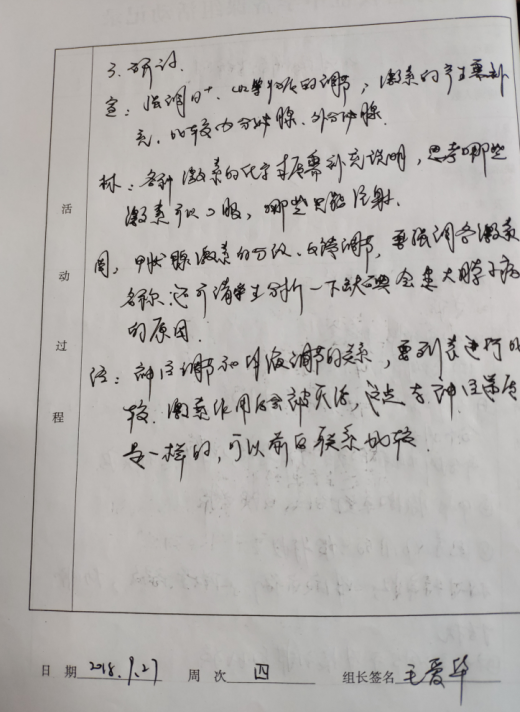 3. 研讨.
宣：强调H⁺、化学物质的调节，激素的产生要补
充，比较内分泌腺、外分泌腺.
林：各种激素的化学本质要补充说明，思考哪些
激素可以口服，哪些只能注射.
周：甲状腺激素的分级、反馈调节，要强调各激素
名称.还可请学生分析一下缺碘会患大脖子病
的原因.
活动过程
：神经调节和体液调节的关系，要列表进行比
较.激素作用后会被灭活，这点与神经递质
是一样的，可以前后联系比较.
日 期 2018.9.27 周 次 四 组长签名 毛爱华